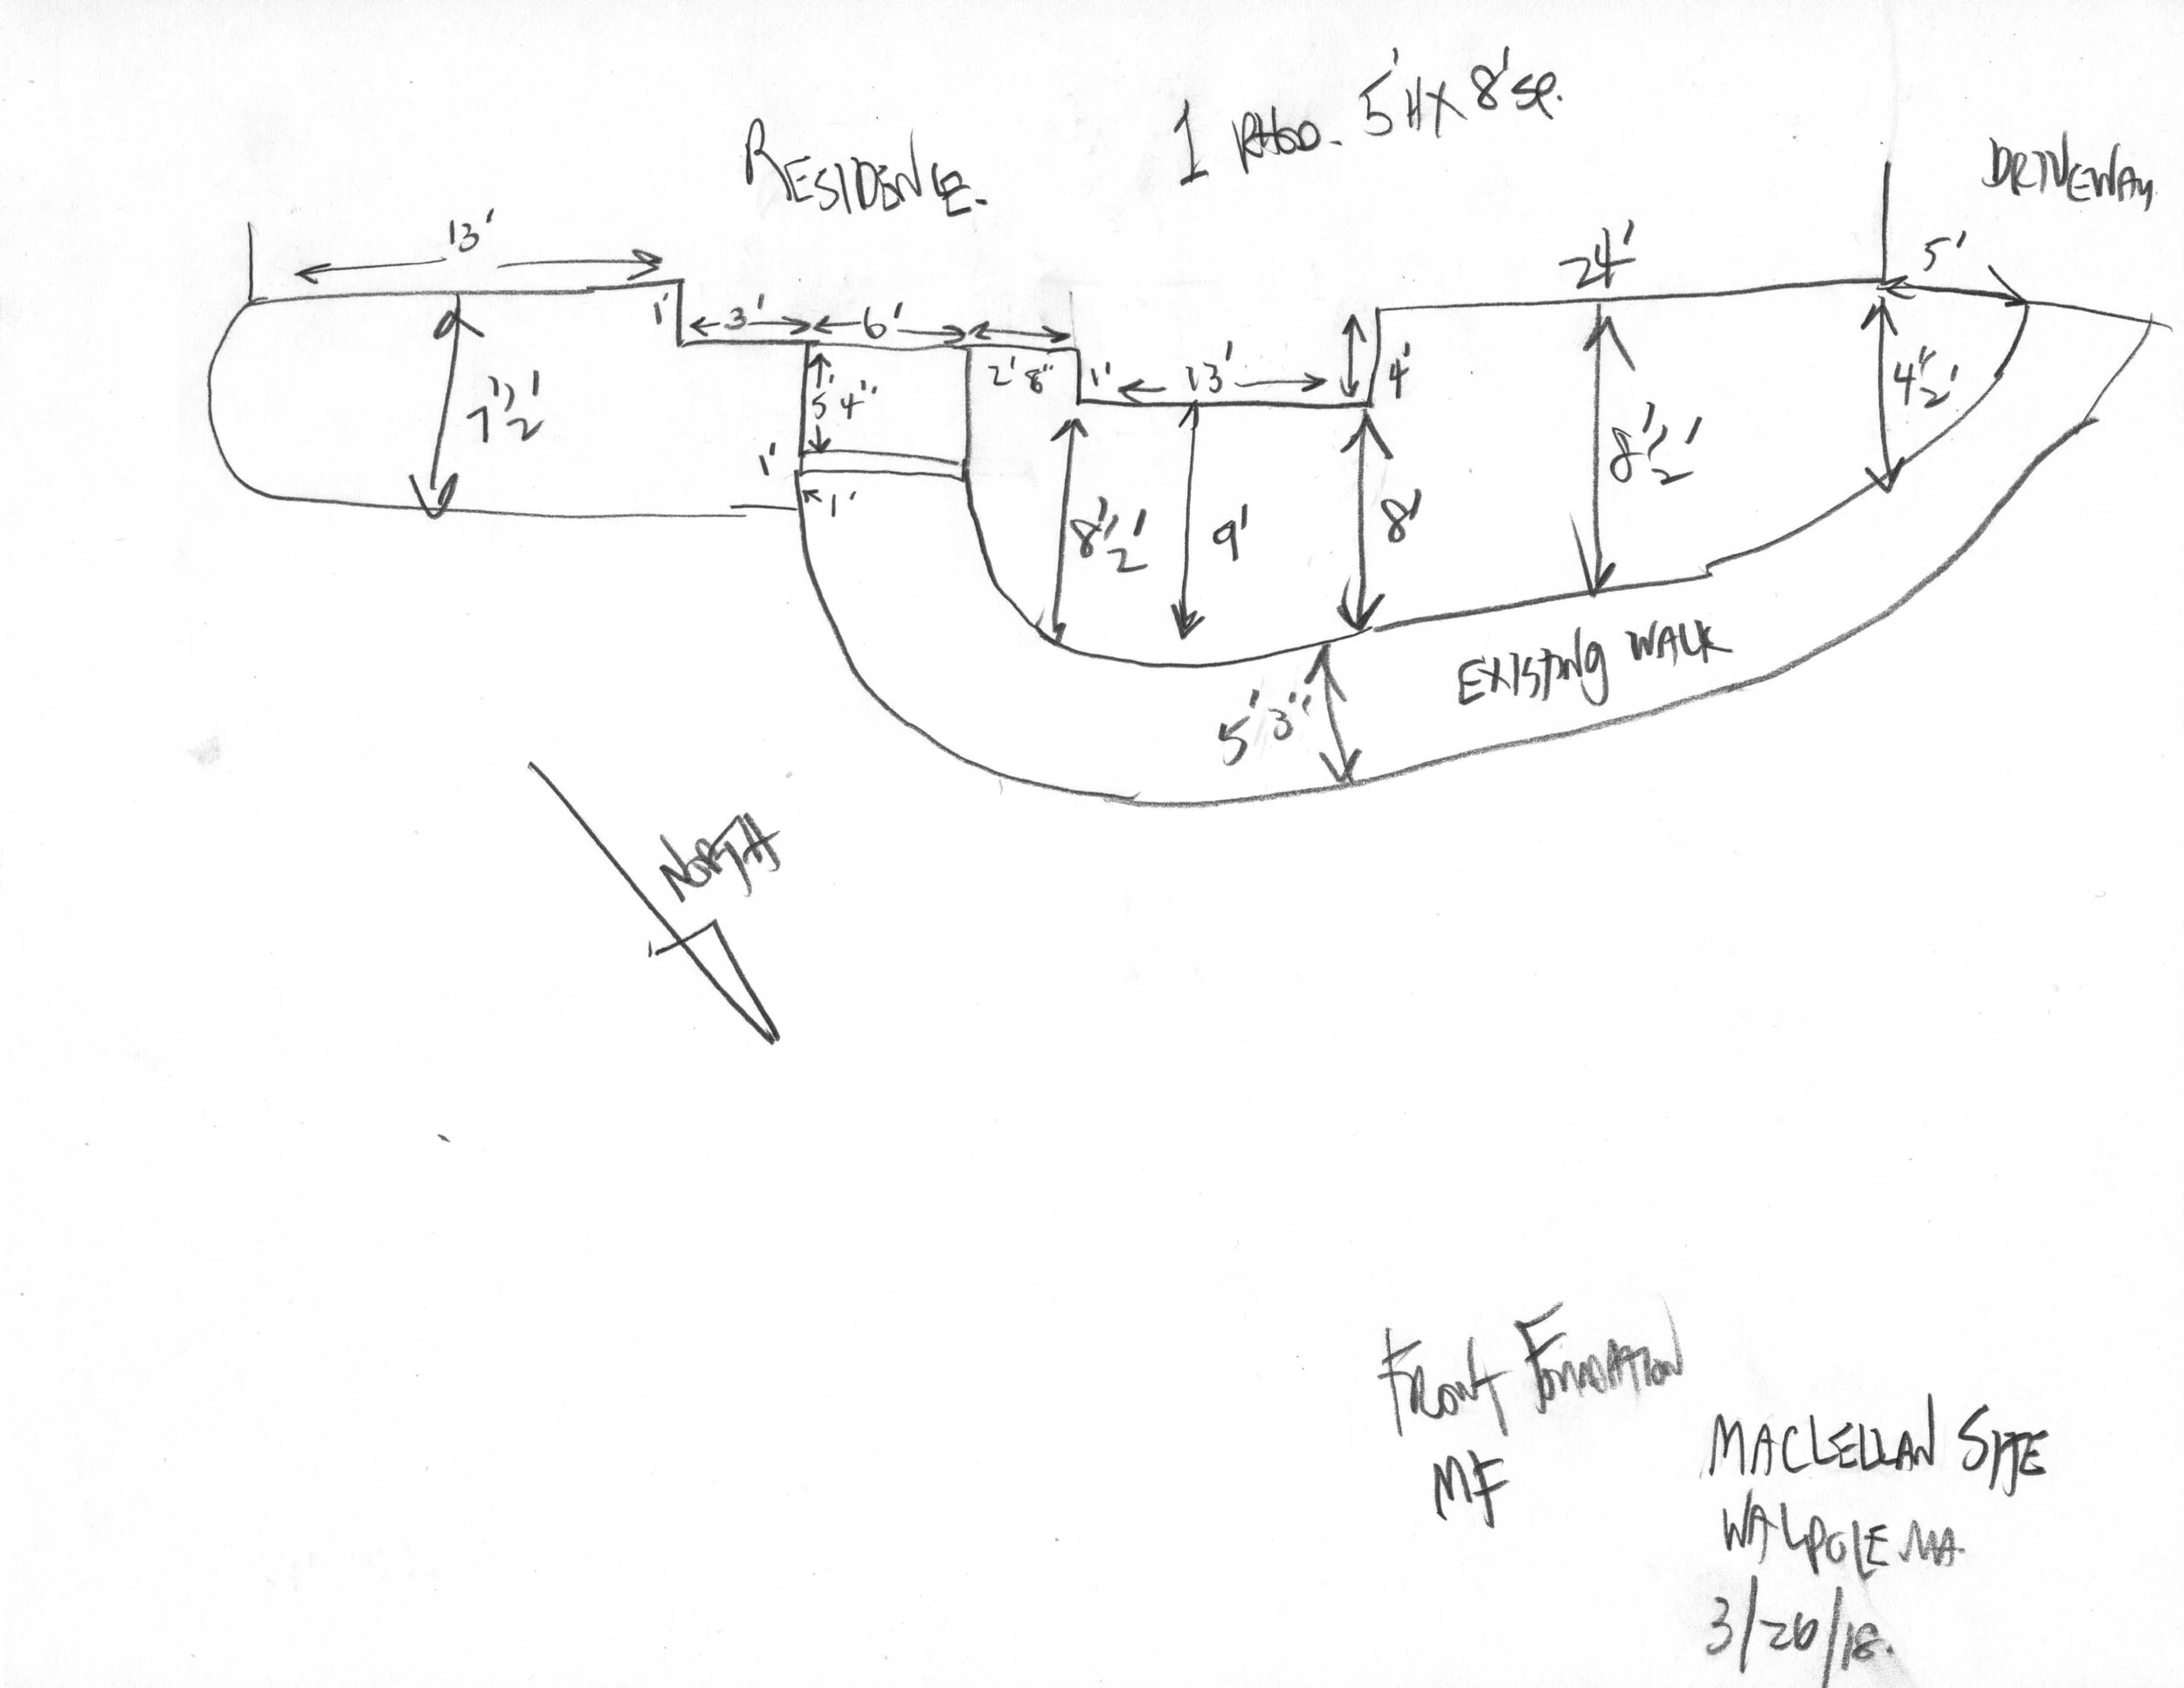 1 RHOD. 5'H X 8' SP.
RESIDENCE.
DRIVEWAY
13'
24'
5'
1'
3'
6'
2'8"
1'
13'
4'
4 1/2'
7 1/2'
5'4"
8 1/2'
1'
1'
8 1/2'
9'
8'
EXISTING WALK
5'3"
NORTH
FRONT FOUNDATION
MF
MACLELLAN SITE
WALPOLE MA.
3/26/18.